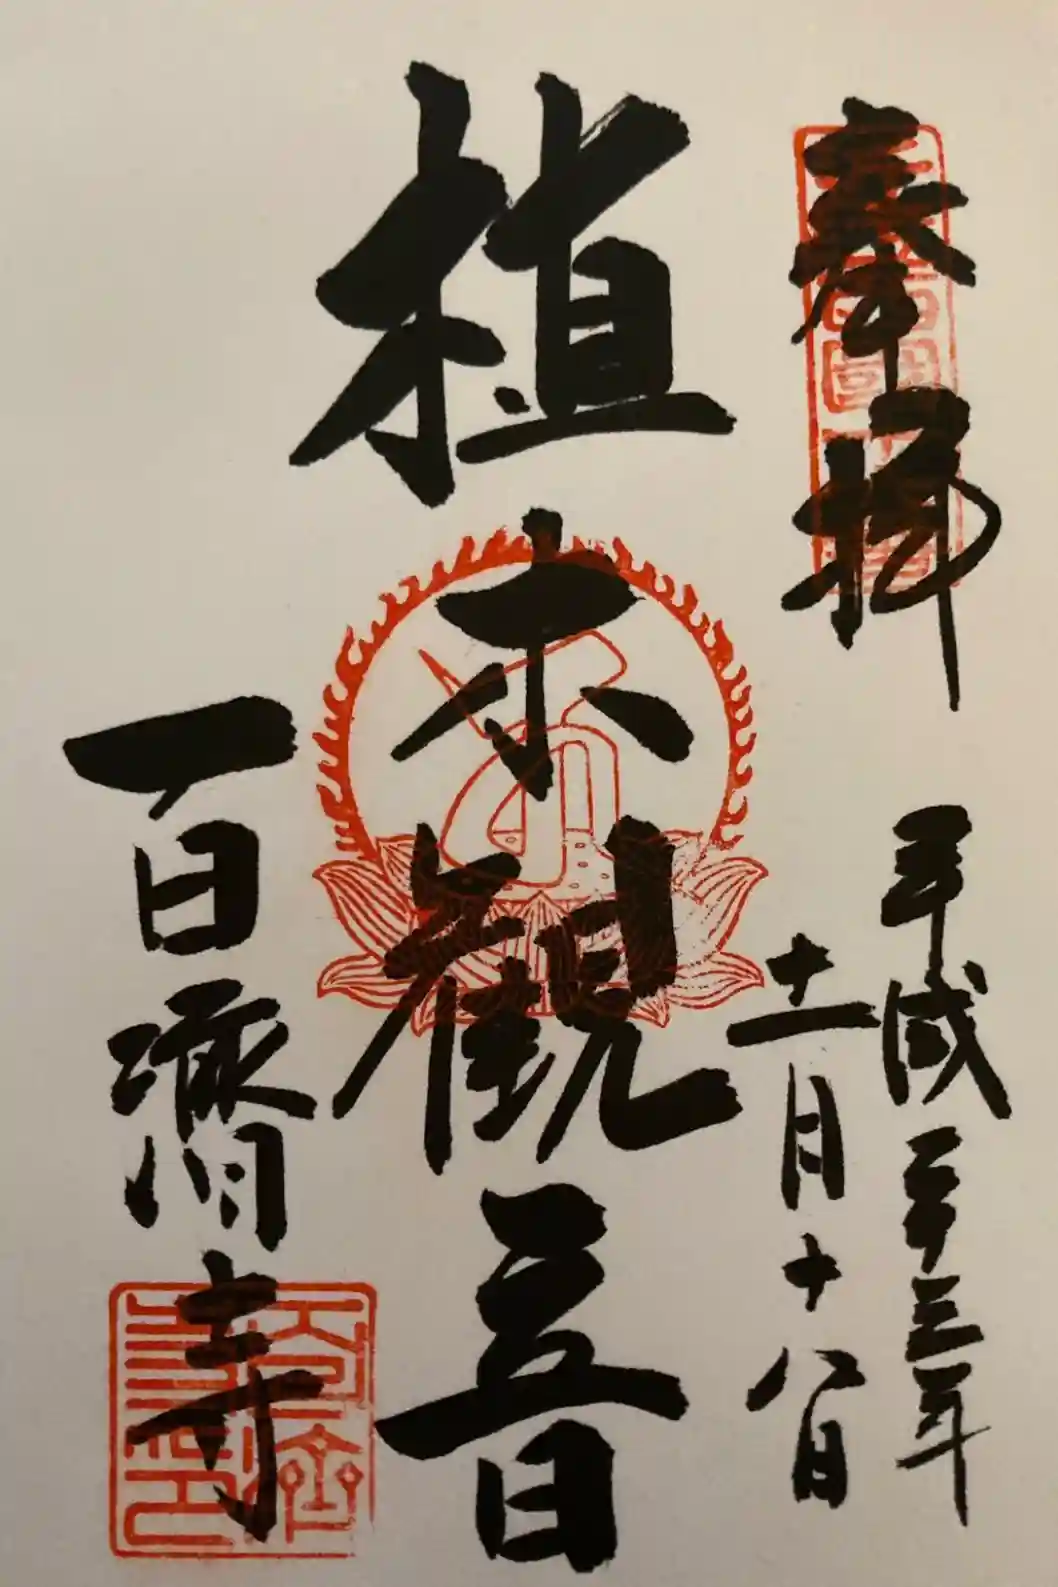 奉拝
平成二十三年
十一月十八日
植木観音
百済寺